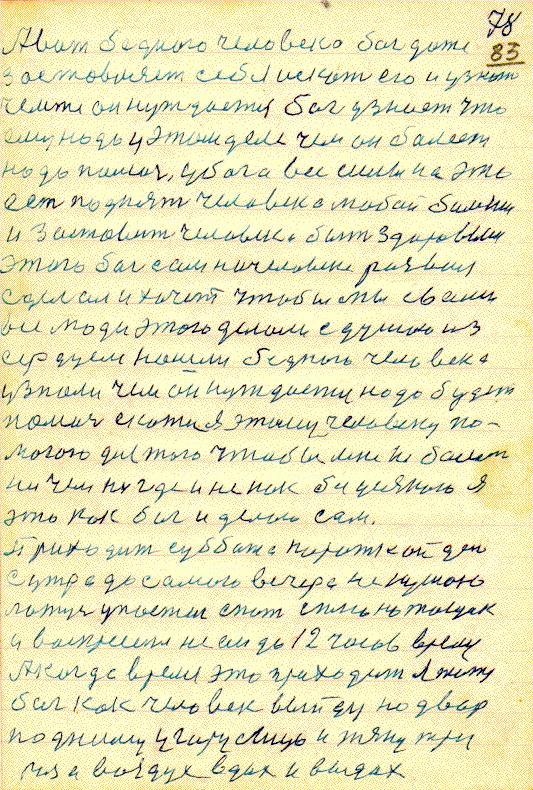 78
83
А вот бедного человека бог даже
заставляет себя искат его и узнат
чемже он нуждается бог узнает что
ему надо у этом деле чем он болеет
надо помоч, у бога все силы на это
ест поднят человека любой болезни
и заставит человека быт здоровым
этого бог сам на человеке развил
сделал и хочет чтобы мы с вами
все люди этого делали с душою из
сердцем нашли бедного человека
узнали чем он нуждается надо будет
помоч скажи я этому человеку по-
могаю для того чтобы мне не болет
ни чем нигде и не как бы
я
это как бог и делаю сам.
Приходит суббота
ден
с утра до самого вечера не кушаю
ложус у постел спат сплю
а воскресеня не ем до 12 часов время
А когда время это приходит я
бог как человек выйду на двор
подниму у гору лицо и тяну три
раза воздух вдох и выдох